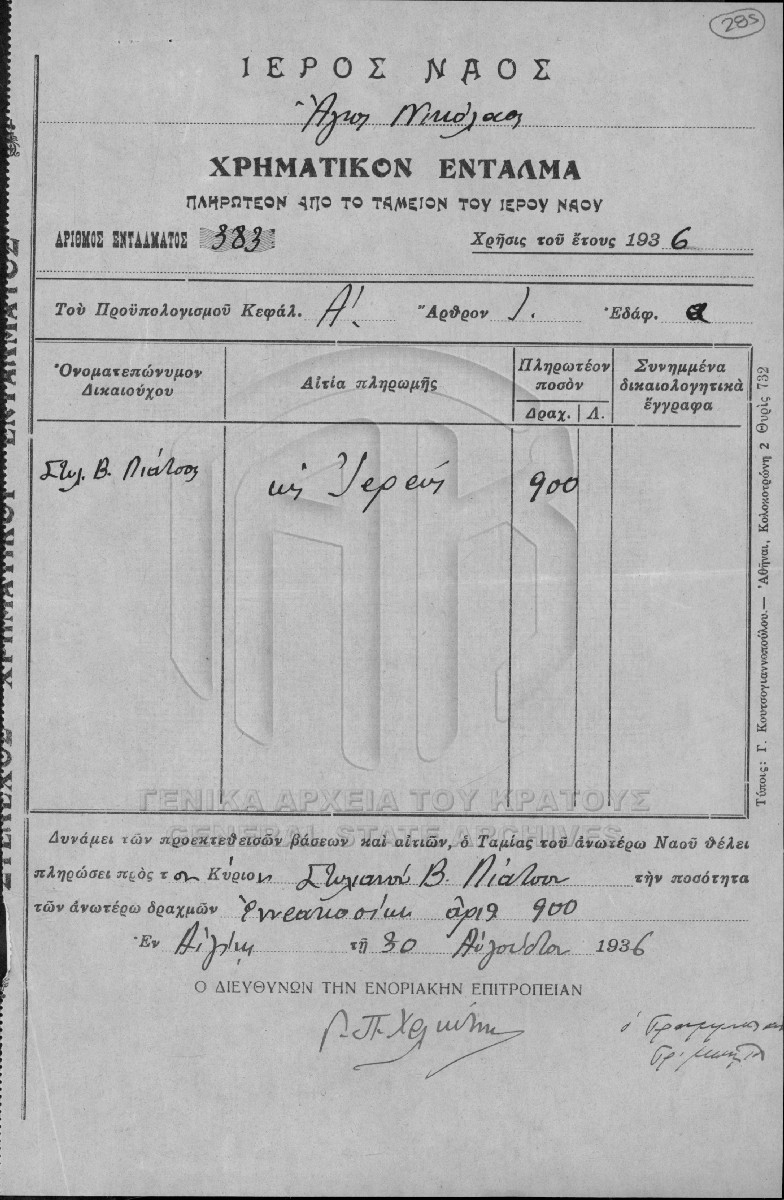 285
ΙΕΡΟΣ ΝΑΟΣ
Ἅγιος Νικόλαος
ΧΡΗΜΑΤΙΚΟΝ ΕΝΤΑΛΜΑ
ΠΛΗΡΩΤΕΟΝ ΑΠΟ ΤΟ ΤΑΜΕΙΟΝ ΤΟΥ ΙΕΡΟΥ ΝΑΟΥ
ΑΡΙΘΜΟΣ ΕΝΤΑΛΜΑΤΟΣ 383 Χρῆσις τοῦ ἔτους 1936
Τοῦ Προϋπολογισμοῦ Κεφάλ. Α! Ἄρθρον 1. Ἐδάφ. α
Ὀνοματεπώνυμον Δικαιούχου Αἰτία πληρωμῆς Πληρωτέον ποσὸν Δραχ. Λ. Συνημμένα δικαιολογητικὰ ἔγγραφα
Στυλ. Β. Λιάτσος ὡς Ἱερεύς 900
ΓΕΝΙΚΑ ΑΡΧΕΙΑ ΤΟΥ ΚΡΑΤΟΥΣ
GENERAL STATE ARCHIVES
Δυνάμει τῶν προεκτεθεισῶν βάσεων καὶ αἰτιῶν, ὁ Ταμίας τοῦ ἀνωτέρω Ναοῦ θέλει
πληρώσει πρὸς τὸν Κύριον Στυλιανόν Β. Λιάτσον τὴν ποσότητα
τῶν ἀνωτέρω δραχμῶν ἐννεακοσίων ἀριθ 900
Ἐν Αἰγίνῃ τῇ 30 Αὐγούστου 1936
Ο ΔΙΕΥΘΥΝΩΝ ΤΗΝ ΕΝΟΡΙΑΚΗΝ ΕΠΙΤΡΟΠΕΙΑΝ
ὁ Γραμματεύς
Τύποις: Γ. Κουτσογιαννοπούλου.— Ἀθῆναι, Κολοκοτρώνη 2 Θυρὶς 732
ΣΤΕΛΕΧΟΣ ΧΡΗΜΑΤΙΚΟΥ ΕΝΤΑΛΜΑΤΟΣ